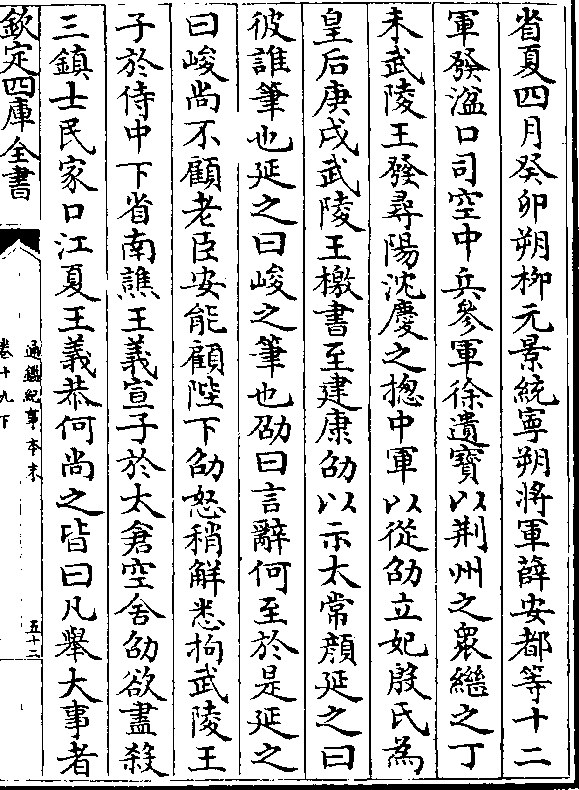 省夏四月癸卯朔柳元景統寧朔將軍薛安都等十二
軍發湓口司空中兵參軍徐遺寶以荆州之衆繼之丁
未武陵王發尋陽沈慶之揔中軍以從劭立妃殷氏為
皇后庚戌武陵王檄書至建康劭以示太常顔延之曰
彼誰筆也延之曰峻之筆也劭曰言辭何至於是延之
曰峻尚不顧老臣安能顧陛下劭怒稍解悉拘武陵王
子於侍中下省南譙王義宣子於太倉空舍劭欲盡殺
三鎮士民家口江夏王義恭何尚之皆曰凡舉大事者
欽定四庫全書
通鑑紀事本末
卷十九下
五十二